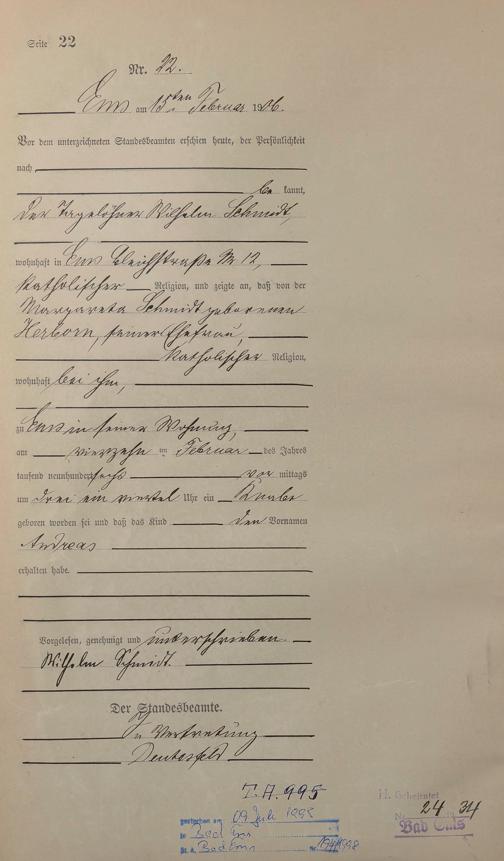 Seite 22
Nr. 22.
Ems am 15ten Februar 1906.
Vor dem unterzeichneten Standesbeamten erschien heute, der Persönlichkeit
nach
be kannt,
der Tagelöhner Wilhelm Schmidt,
wohnhaft in Ems Bleichstraße № 12,
katholischer Religion, und zeigte an, daß von der
Margareta Schmidt geborenen
Herborn, seiner Ehefrau,
katholischer Religion,
wohnhaft bei ihm,
zu Ems in seiner Wohnung,
am vierzehn im Februar des Jahres
tausend neunhundert sechs vor mittags
um drei ein viertel Uhr ein Knabe
geboren worden sei und daß das Kind den Vornamen
Andreas
erhalten habe.
Vorgelesen, genehmigt und unterschrieben
Wilhelm Schmidt.
Der Standesbeamte.
In Vertretung
T.A. 995
gestorben am 09. Juli
in Bad Ems
St. A. Bad Ems
H. Geheiratet
24 34
Bad Ems